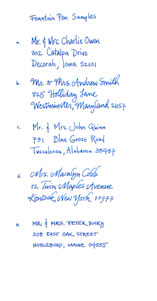 Fountain Pen Samples
a. Mr. & Mrs. Charlie Owen
302 Catalpa Drive
Decorah, Iowa 52101
b. Mr. & Mrs. Andrew Smith
825 Holliday Lane
Westminster, Maryland 21157
c. Mr. & Mrs. John Quinn
791 Blue Goose Road
Tuscaloosa, Alabama
d. Mrs. Maralyn Cobb
12 Twin Maples Avenue
New York 10977
e. Mr. & Mrs. Peter
208 East Oak Street
Nobleboro, Maine 04555